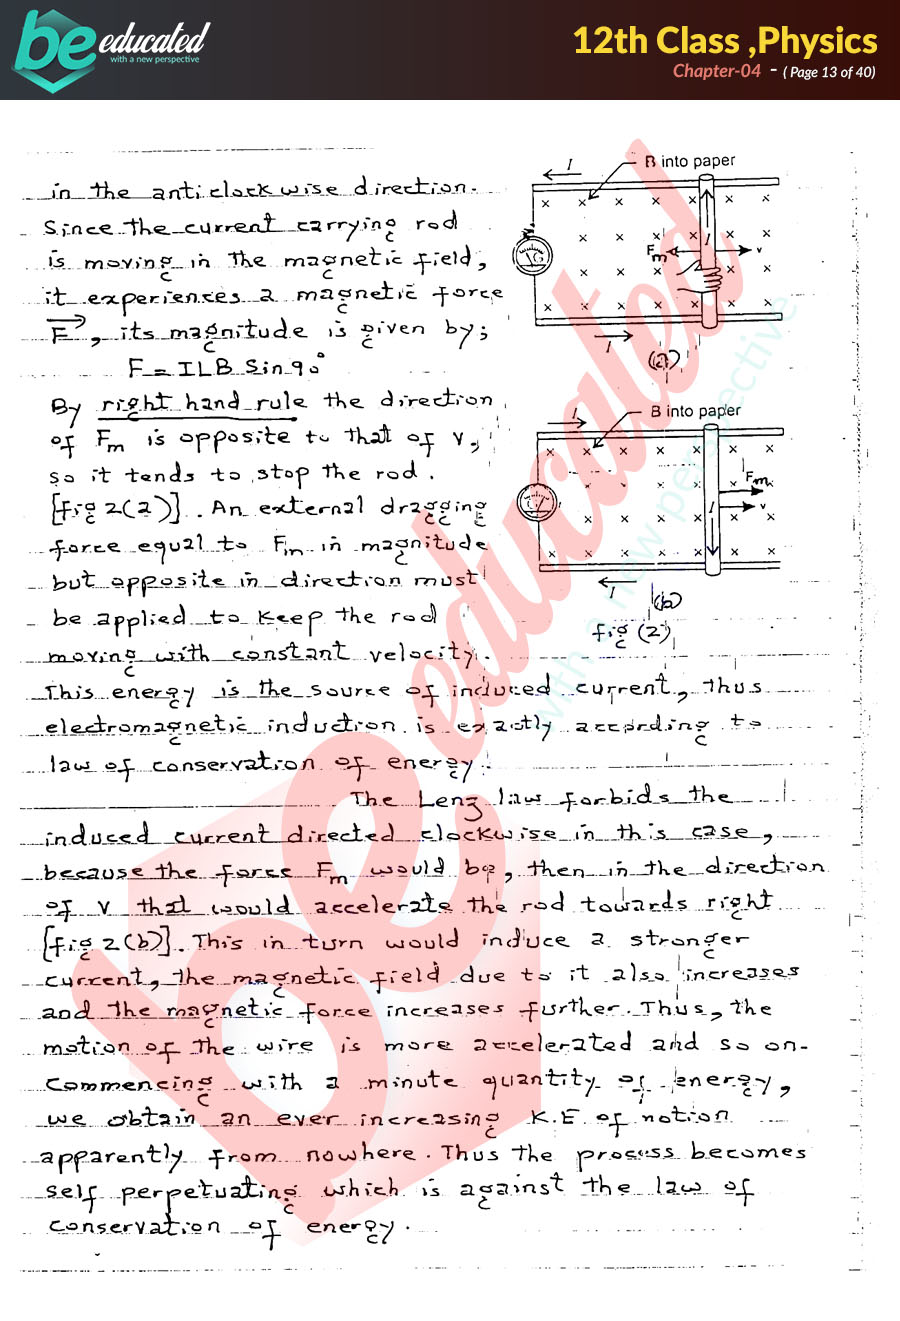 be educated
with a new perspective
12th Class ,Physics
Chapter-04 - ( Page 13 of 40)
in the anticlockwise direction.
Since the current carrying rod
is moving in the magnetic field,
it experiences a magnetic force
F, its magnitude is given by;
F = ILB Sin90°
By right hand rule the direction
of Fm is opposite to that of v,
so it tends to stop the rod.
[fig 2(a)]. An external dragging
force equal to Fm in magnitude
but opposite in direction must
be applied to keep the rod
moving with constant velocity.
This energy is the source of induced current, thus
electromagnetic induction is exactly according to
law of conservation of energy.
The Lenz law forbids the
induced current directed clockwise in this case,
because the force Fm would be, then in the direction
of v that would accelerate the rod towards right
[fig 2(b)]. This in turn would induce a stronger
current, the magnetic field due to it also increases
and the magnetic force increases further. Thus, the
motion of the wire is more accelerated and so on.
Commencing with a minute quantity of energy,
we obtain an ever increasing K.E of motion
apparently from nowhere. Thus the process becomes
self perpetuating which is against the law of
conservation of energy.
I
B into paper
G
Fm
I
v
I
(a)
I
B into paper
G
Fm
v
I
I
(b)
fig (2)
be educated
with a new perspective